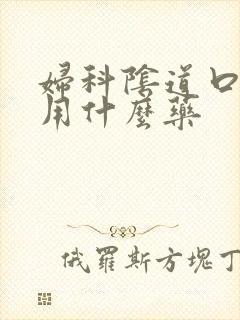 婦科陰道口
用什麼藥
俄羅斯方塊丁